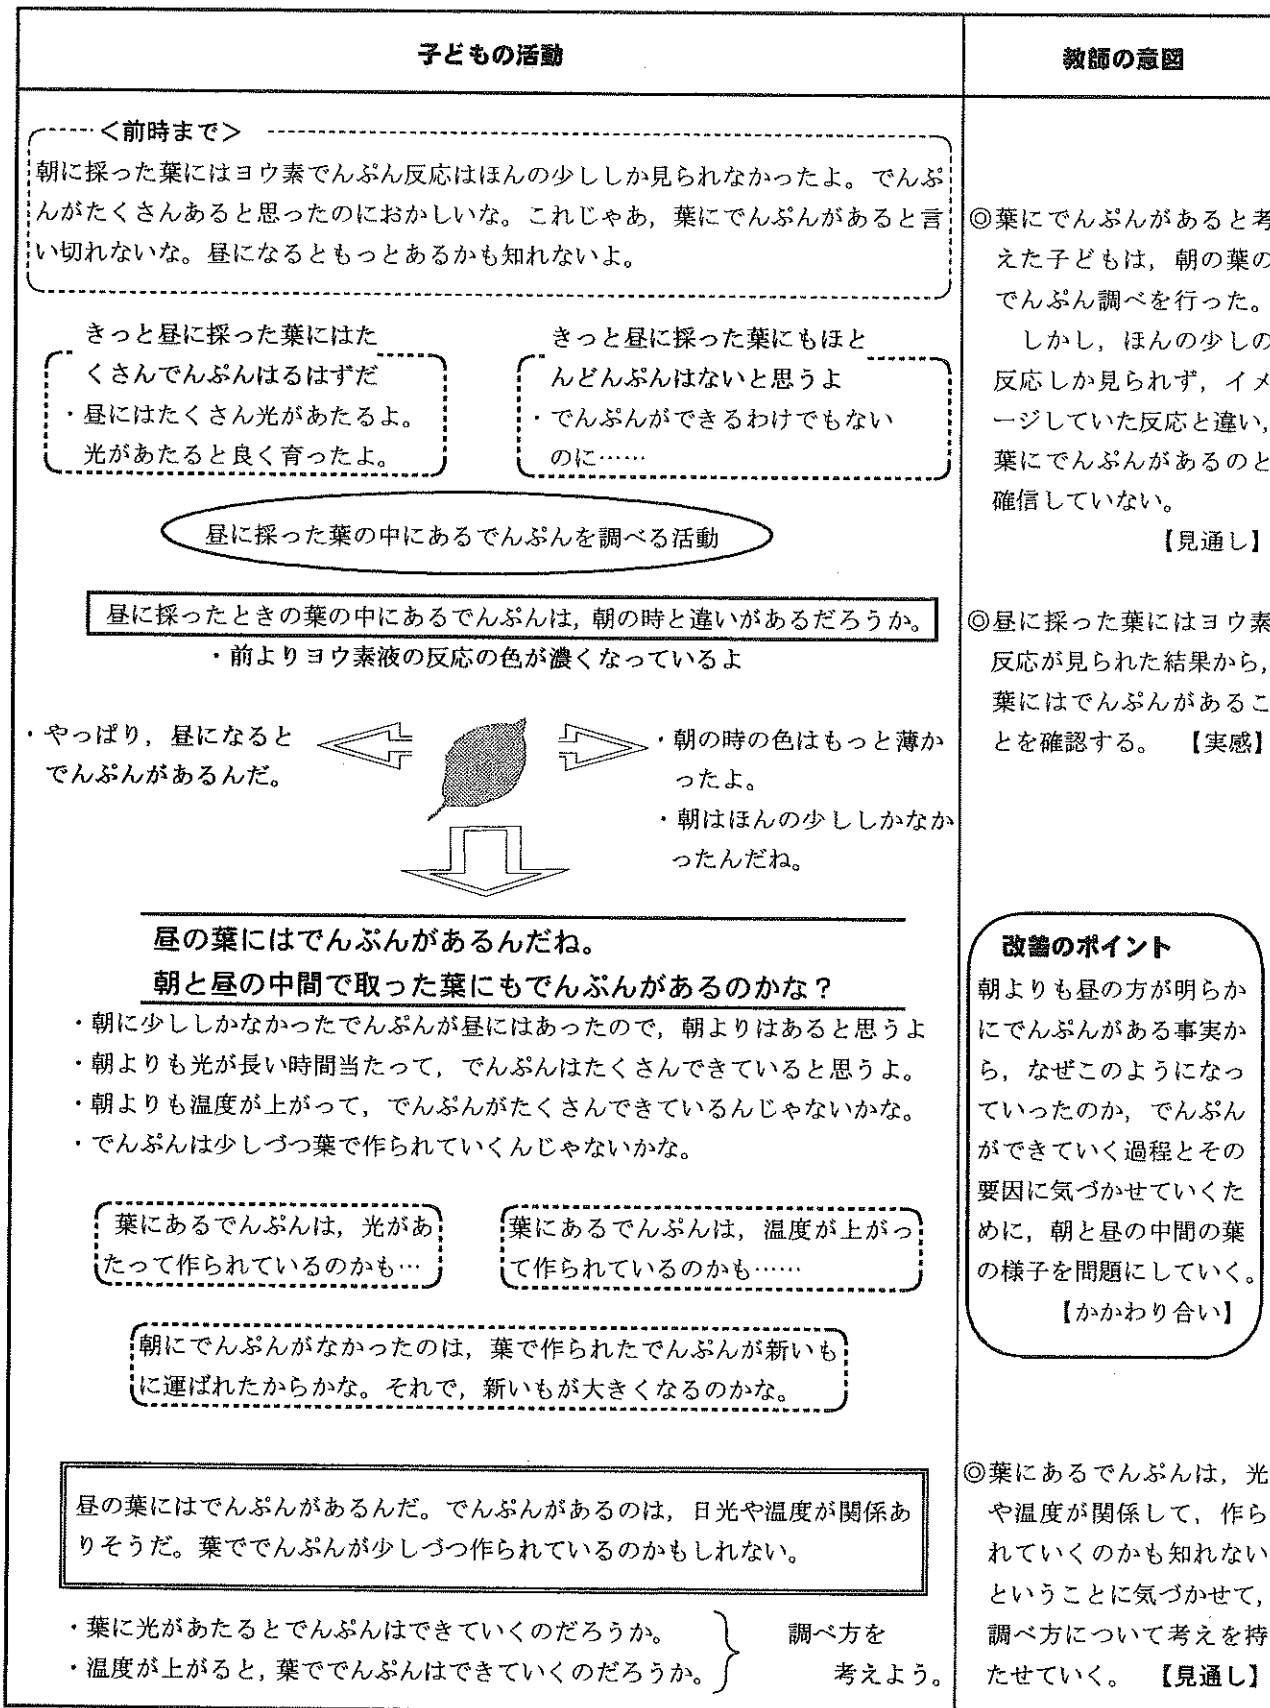 子どもの活動
教師の意図
<前時まで>
朝に採った葉にはヨウ素でんぷん反応はほんの少ししか見られなかったよ。でんぷ
んがたくさんあると思ったのにおかしいな。これじゃあ，葉にでんぷんがあると言
い切れないな。昼になるともっとあるかも知れないよ。
きっと昼に採った葉にはた
くさんでんぷんはるはずだ
・昼にはたくさん光があたるよ。
光があたると良く育ったよ。
きっと昼に採った葉にもほと
んどんぷんはないと思うよ
・でんぷんができるわけでもない
のに……
昼に採った葉の中にあるでんぷんを調べる活動
昼に採ったときの葉の中にあるでんぷんは，朝の時と違いがあるだろうか。
・前よりヨウ素液の反応の色が濃くなっているよ
・やっぱり，昼になると
でんぷんがあるんだ。
・朝の時の色はもっと薄か
ったよ。
・朝はほんの少ししかなか
ったんだね。
昼の葉にはでんぷんがあるんだね。
朝と昼の中間で取った葉にもでんぷんがあるのかな？
・朝に少ししかなかったでんぷんが昼にはあったので，朝よりはあると思うよ
・朝よりも光が長い時間当たって，でんぷんはたくさんできていると思うよ。
・朝よりも温度が上がって，でんぷんがたくさんできているんじゃないかな。
・でんぷんは少しづつ葉で作られていくんじゃないかな。
葉にあるでんぷんは，光があ
たって作られているのかも…
葉にあるでんぷんは，温度が上がっ
て作られているのかも……
朝にでんぷんがなかったのは，葉で作られたでんぷんが新いも
に運ばれたからかな。それで，新いもが大きくなるのかな。
昼の葉にはでんぷんがあるんだ。でんぷんがあるのは，日光や温度が関係あ
りそうだ。葉ででんぷんが少しづつ作られているのかもしれない。
・葉に光があたるとでんぷんはできていくのだろうか。
・温度が上がると，葉ででんぷんはできていくのだろうか。
調べ方を
考えよう。
◎葉にでんぷんがあると考
えた子どもは，朝の葉の
でんぷん調べを行った。
しかし，ほんの少しの
反応しか見られず，イメ
ージしていた反応と違い，
葉にでんぷんがあるのと
確信していない。
【見通し】
◎昼に採った葉にはヨウ素
反応が見られた結果から，
葉にはでんぷんがあるこ
とを確認する。 【実感】
改善のポイント
朝よりも昼の方が明らか
にでんぷんがある事実か
ら，なぜこのようになっ
ていったのか，でんぷん
ができていく過程とその
要因に気づかせていくた
めに，朝と昼の中間の葉
の様子を問題にしていく。
【かかわり合い】
◎葉にあるでんぷんは，光
や温度が関係して，作ら
れていくのかも知れない
ということに気づかせて，
調べ方について考えを持
たせていく。 【見通し】